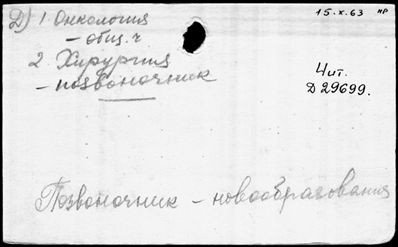 Д) 1 Онкология
15.X.63 нр
– общ. ч
2 Хирургия
– позвоночник
Чит.
Д 29699.
Позвоночник – новообразования